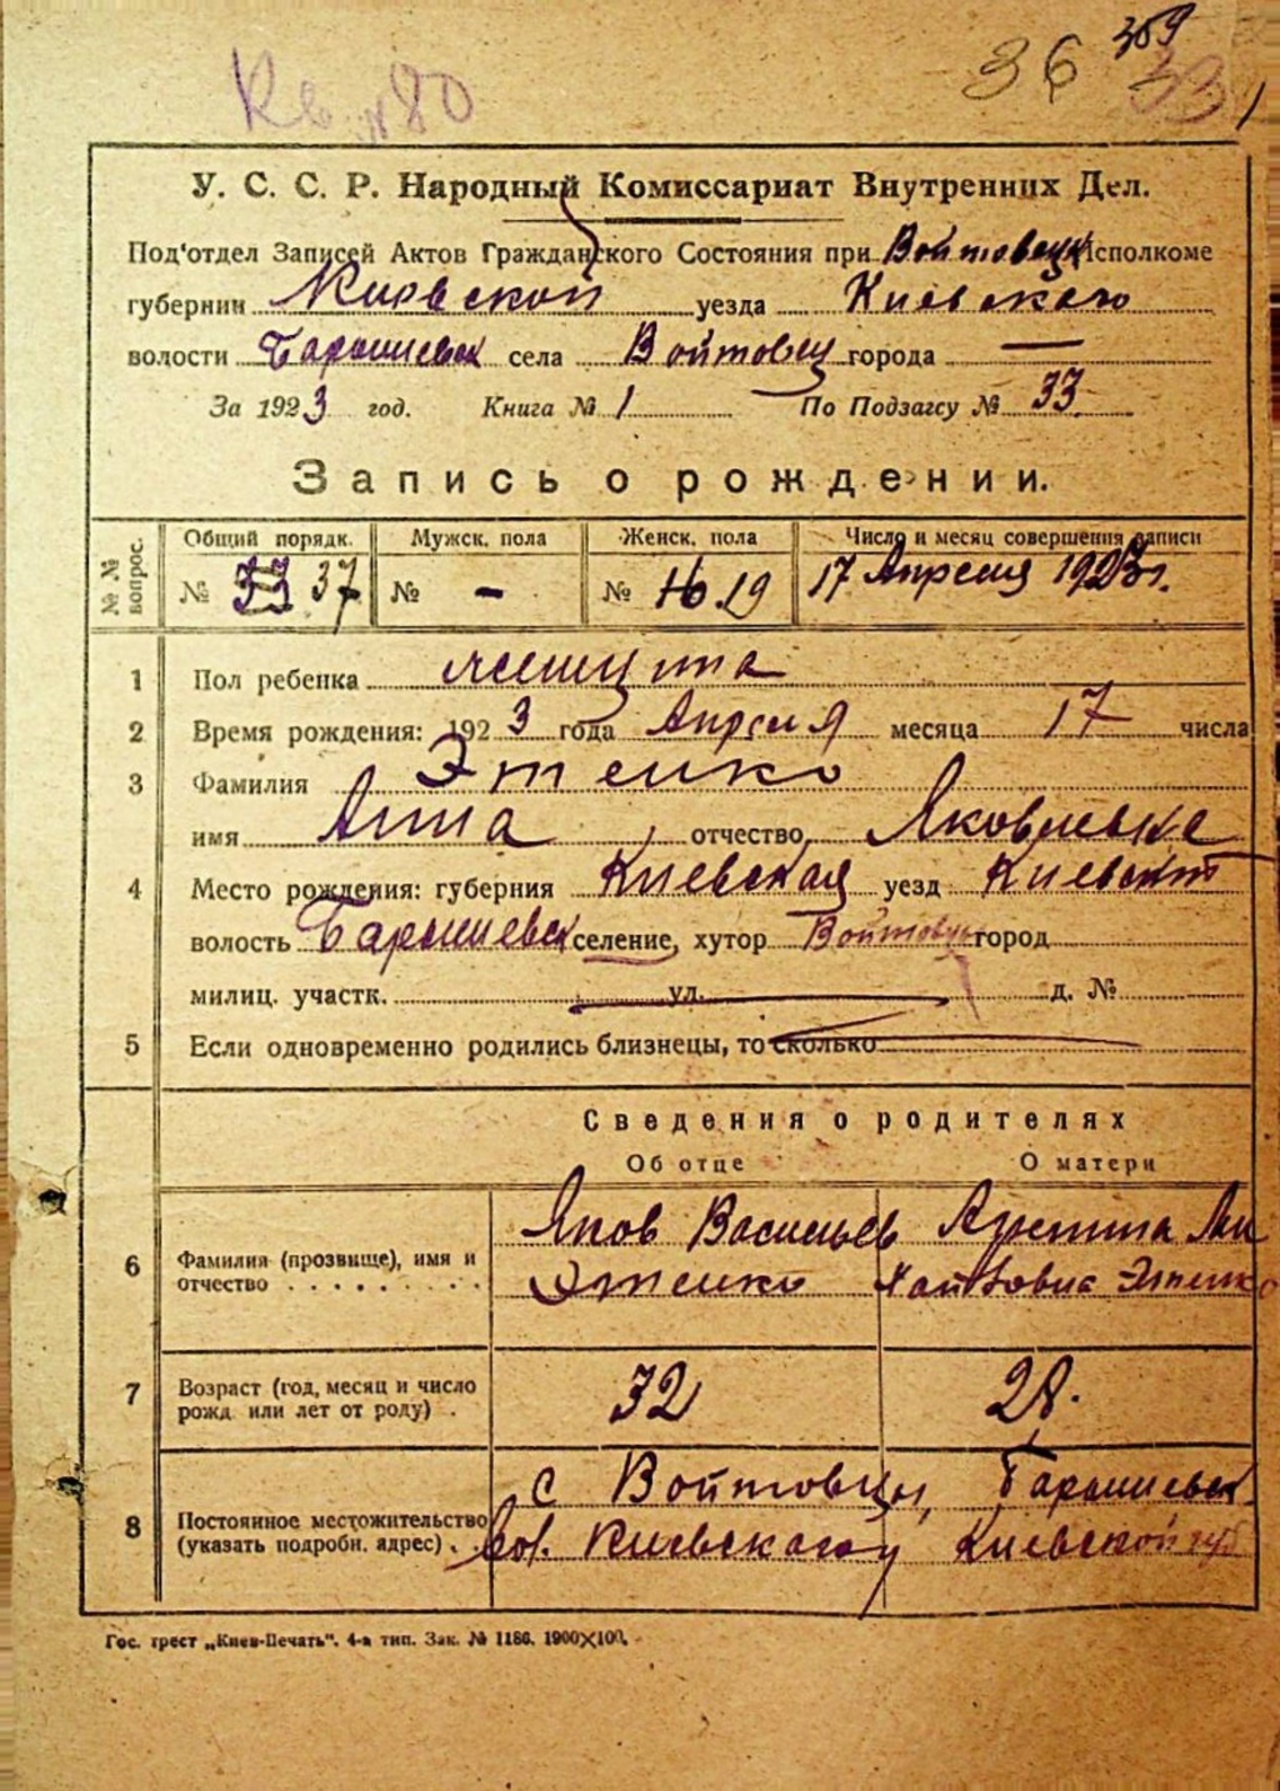 Кв. № 80
36 359 33
У. С. С. Р. Народный Комиссариат Внутренних Дел.
Под'отдел Записей Актов Гражданского Состояния при Войтовецк Исполкоме
губернии Киевской уезда Киевского
волости Барышевск села Войтовцы города —
За 1923 год. Книга № 1 По Подзагсу № 33
Запись о рождении.
№№ вопрос. Общий порядк. Мужск. пола Женск. пола Число и месяц совершения записи
№ 33 37 № - № 16 19 17 Апреля 1923 г.
1 Пол ребенка
2 Время рождения: 1923 года Апреля месяца 17 числа
3 Фамилия Этенко
имя Анна отчество Яковлевна
4 Место рождения: губерния Киевская уезд Киевский
волость Барышевск селение, хутор Войтовцы город
милиц. участк. ул. д. №
5 Если одновременно родились близнецы, то сколько
Сведения о родителях
Об отце О матери
6 Фамилия (прозвище), имя и отчество Яков Васильев Этенко Этенко
7 Возраст (год, месяц и число рожд. или лет от роду) . 32 28.
8 Постоянное местожительство (указать подробн. адрес) . . с Войтовцы, Барышевск вол. Киевского у Киевской губ
Гос. трест „Киев-Печать". 4-я тип. Зак. № 1186. 1900×100.